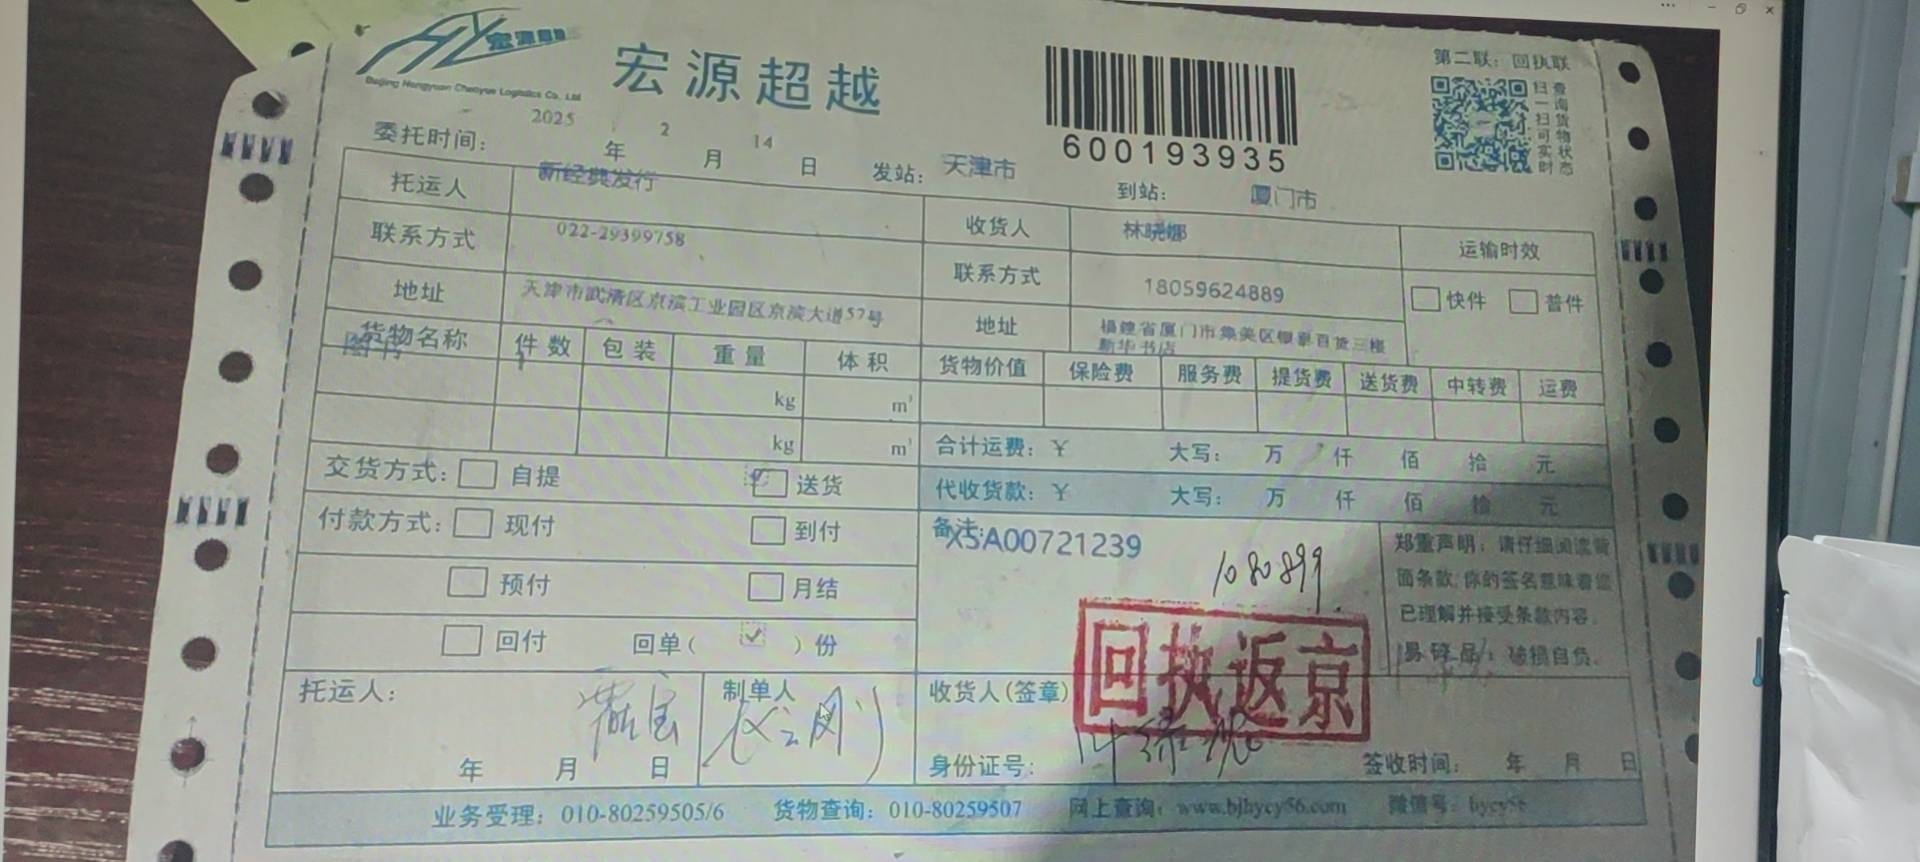 宏源超越
Beijing Hongyuan Chaoyue Logistics Co., Ltd
宏源超越
600193935
第二联：回执联
扫一扫可实时
查询货物状态
委托时间： 2025 年 2 月 14 日 发站： 天津市 到站： 厦门市
托运人 新经典发行 收货人 林晓娜 运输时效
联系方式 022-29399758 联系方式 18059624889 快件 普件
地址 天津市武清区京滨工业园区京滨大道57号 地址 福建省厦门市集美区 百货三楼
新华书店
货物名称 件数 包装 重量 体积 货物价值 保险费 服务费 提货费 送货费 中转费 运费
图书 1
kg m³
kg m³
合计运费：￥ 大写： 万 仟 佰 拾 元
交货方式： 自提 送货 代收货款：￥ 大写： 万 仟 佰 拾 元
付款方式： 现付 到付 备注: XSA00721239
1080899
预付 月结
回付 回单( ✓ )份
郑重声明：请仔细阅读背
面条款,你的签名意味着您
已理解并接受条款内容。
易碎品：破损自负。
回执返京
托运人： 制单人 收货人(签章)
年 月 日 身份证号： 签收时间： 年 月 日
业务受理：010-80259505/6 货物查询：010-80259507 网上查询：www.bjhycy56.com 微信号：hycy56